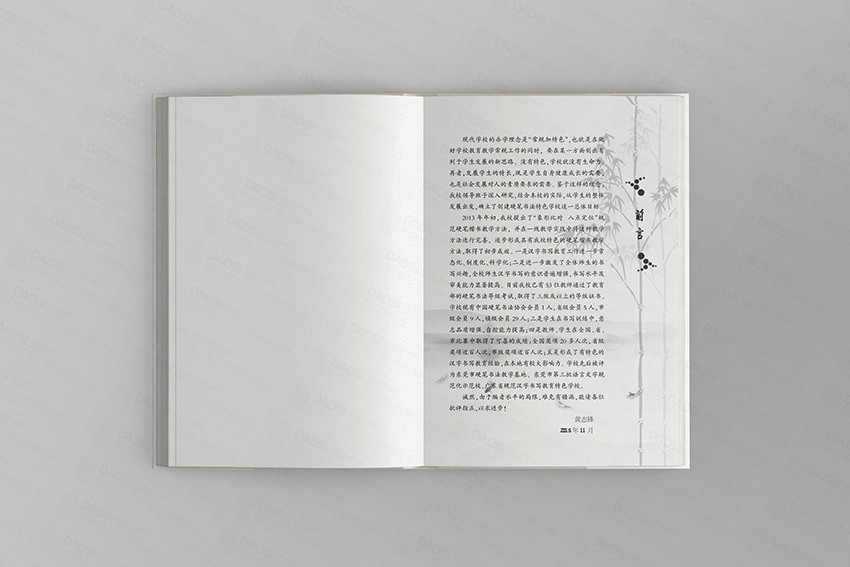 前言
现代学校的办学理念是“常规加特色”,也就是在做
好学校教育教学常规工作的同时，要在某一方面创出有
利于学生发展的新思路。没有特色,学校就没有生命力。
再者,发展学生的特长,既是学生自身健康成长的需要,
也是社会发展对人的素质要求的需要。鉴于这样的理念,
我校领导班子深入研究,结合本校的实际,从学生的整体
发展出发,确立了创建硬笔书法特色学校这一总体目标。
2013 年年初,我校提出了“象形比对 八点定位”规
范硬笔楷书教学方法，并在一线教学实践中将这种教学
方法进行完善，逐步形成具有我校特色的硬笔楷书教学
方法,取得了初步成效。一是汉字书写教育工作进一步常
态化、制度化、科学化;二是进一步激发了全体师生的书
写兴趣,全校师生汉字书写的意识普遍增强,书写水平及
审美能力显著提高。目前我校已有 53 位教师通过了教育
部的硬笔书法等级考试,取得了三级或以上的等级证书。
学校现有中国硬笔书法协会会员 1 人,省级会员 5 人,市
级会员 9 人,镇级会员 29 人;三是学生在书写训练中,意
志品质增强,自控能力提高;四是教师、学生在全国、省、
市比赛中取得了可喜的成绩:全国奖项 20 多人次,省级
奖项近百人次,市级奖项近百人次;五是形成了有特色的
汉字书写教育经验,在本地有较大影响力。学校先后被评
为东莞市硬笔书法教学基地、东莞市第三批语言文字规
范化示范校,广东省规范汉字书写教育特色学校。
诚然,由于编者水平的局限,难免有错漏,敬请各位
批评指正,以求进步!
黄志锋
年 11 月